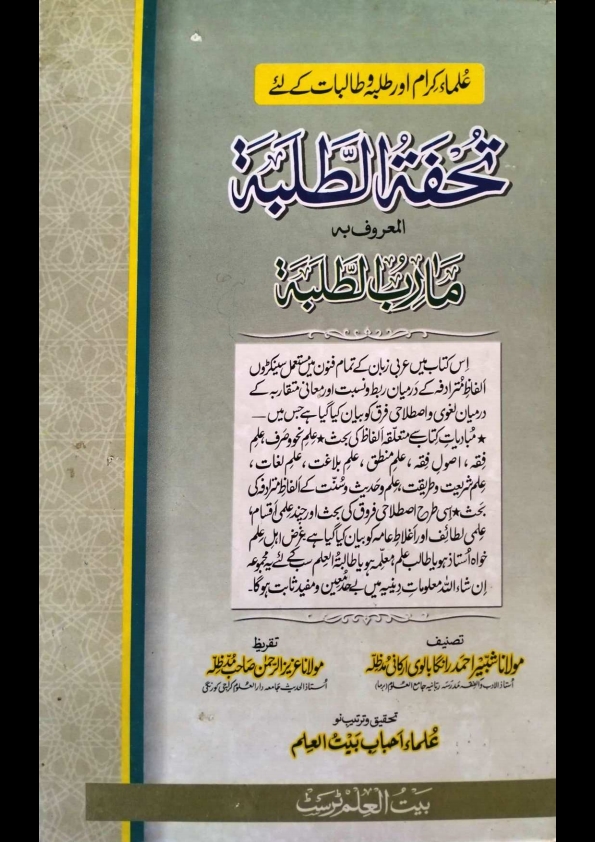 عُلماءِ کرام اور طلبہ و طالبات کے لئے
تُحْفَةُ الطَّلَبَة
المعروف بہ
مَاٰرِبُ الطَّلَبَة
اِس کتاب میں عربی زبان کے تمام فنون میں مستعمل سینکڑوں
الفاظِ مُترادفہ کے درمیان ربط و نسبت اور معانی متقاربہ کے
درمیان لغوی و اصطلاحی فرق کو بیان کیا گیا ہے جس میں —
★ مبادیاتِ کتاب سے متعلقہ الفاظ کی بحث ★ عِلمِ نحو و صَرف، عِلمِ
فِقہ ، اصولِ فِقہ ، عِلمِ منطق ، علمِ بلاغت ، عِلمِ لغات ،
عِلمِ شریعت و طریقت، عِلمِ حدیث و سُنّت کے الفاظِ مترادفہ کی
بحث ★ اِسی طرح اصطلاحی فروق کی بحث اور چند عِلمی اَقسام،
عِلمی لطائف اور اَغلاطِ عامہ کو بیان کیا گیا ہے، غرض اہلِ عِلم
خواہ اُستاذ ہو یا طالبِ علم، مُعلِّمہ ہو یا طالبۃُ العِلم سب کے لئے یہ مجموعہ
اِن شاء اللہ معلوماتِ دِینیہ میں بے حد مُعین و مفید ثابت ہوگا۔
تصنیف
مولانا شبّیر احمد رانکابالوی ارکانی مُدظلّہٗ
اُستاذ الادب والفقہ مدرسہ ربانیہ جامع العلوم (برما)
تقریظ
مولانا عزیز الرحمٰن صاحب مُدظلّہٗ
اُستاذ الحدیث جامعہ دارالعلوم کراچی کورنگی
تحقیق و ترتیبِ نو
عُلماءِ احبابِ بَیتُ العِلم
بیتُ العِلم ٹرسٹ